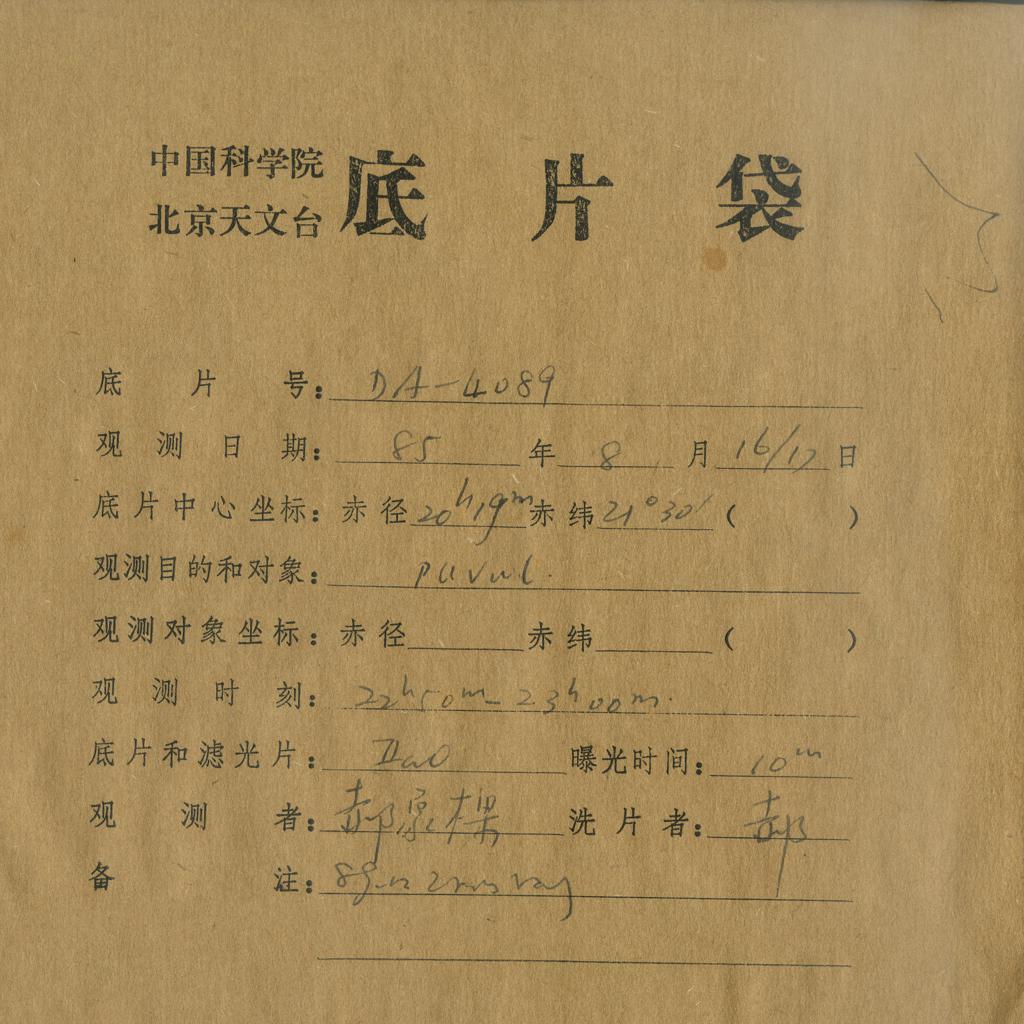 中国科学院
北京天文台 底片袋
底片号: DA-4089
观测日期: 85 年 8 月 16/17 日
底片中心坐标: 赤径 20h19m 赤纬 21°30′ ( )
观测目的和对象:
观测对象坐标: 赤径 赤纬 ( )
观测时刻: 22h50m-23h00m.
底片和滤光片: IIaO 曝光时间: 10m
观测者: 郝 洗片者: 郝
备注: